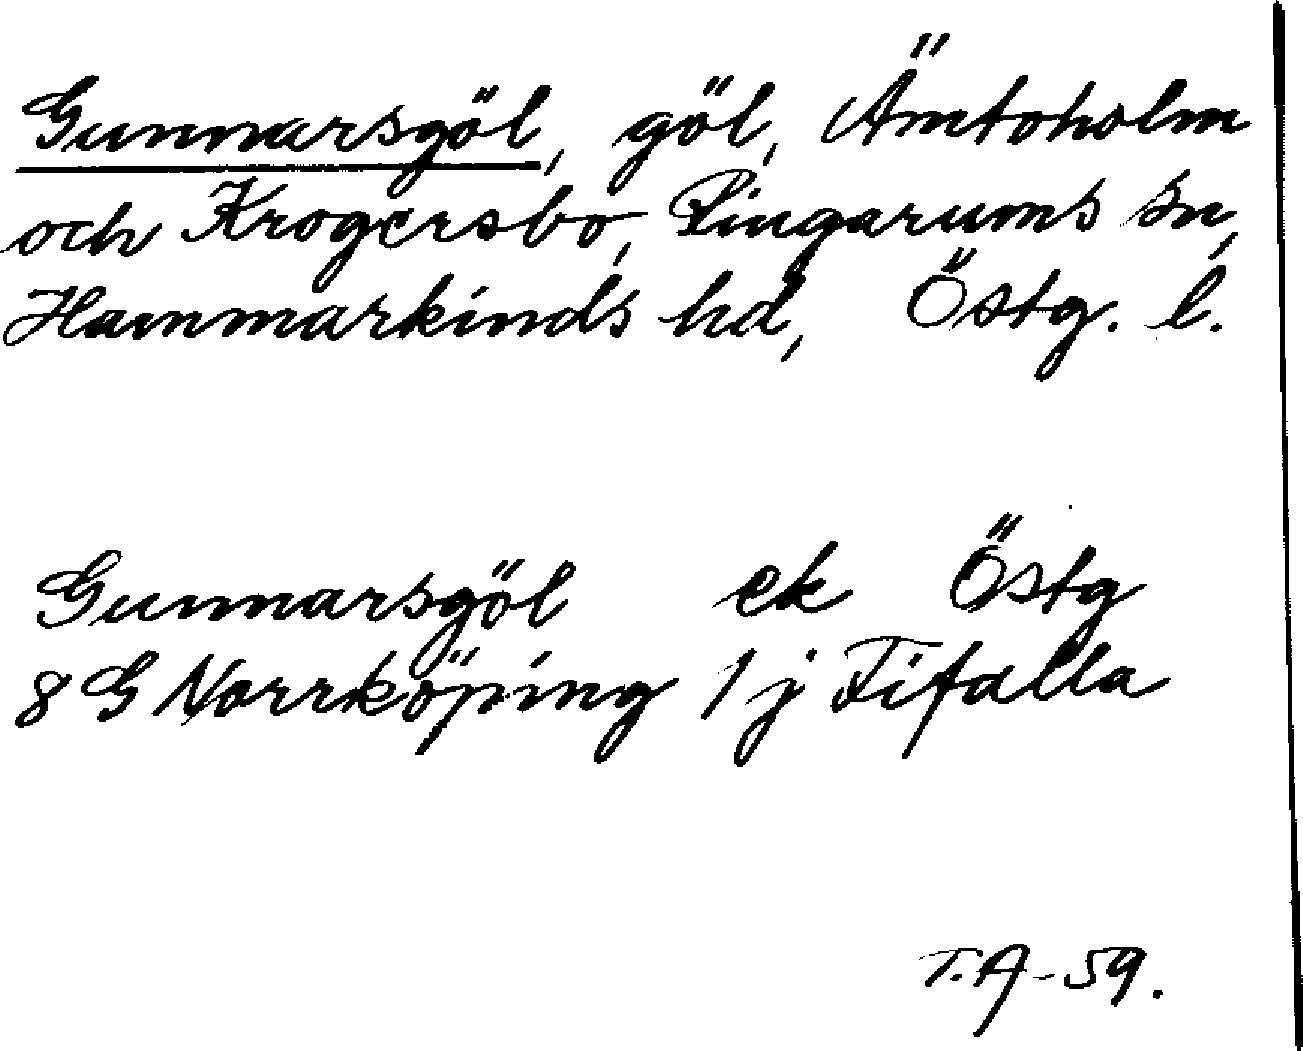 Gunnarsgöl, göl, Ämtöholm
och Krogersbo, Ringarums sn,
Hammarkinds hd, Östg. l.
Gunnarsgöl ek Östg
8 G Norrköping 1 j Fifalla
T.A-59.